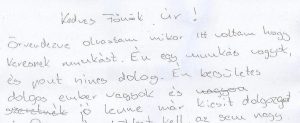 Kedves Főnök Úr!
Örvendezve olvastam mikor itt voltam hogy
keresnek munkást. Én egy munkás vagyok,
és pont nincs dolog. Én becsületes
dolgos ember vagyok és
jó lenne már kicsit dolgozgat
kell az sem nagy